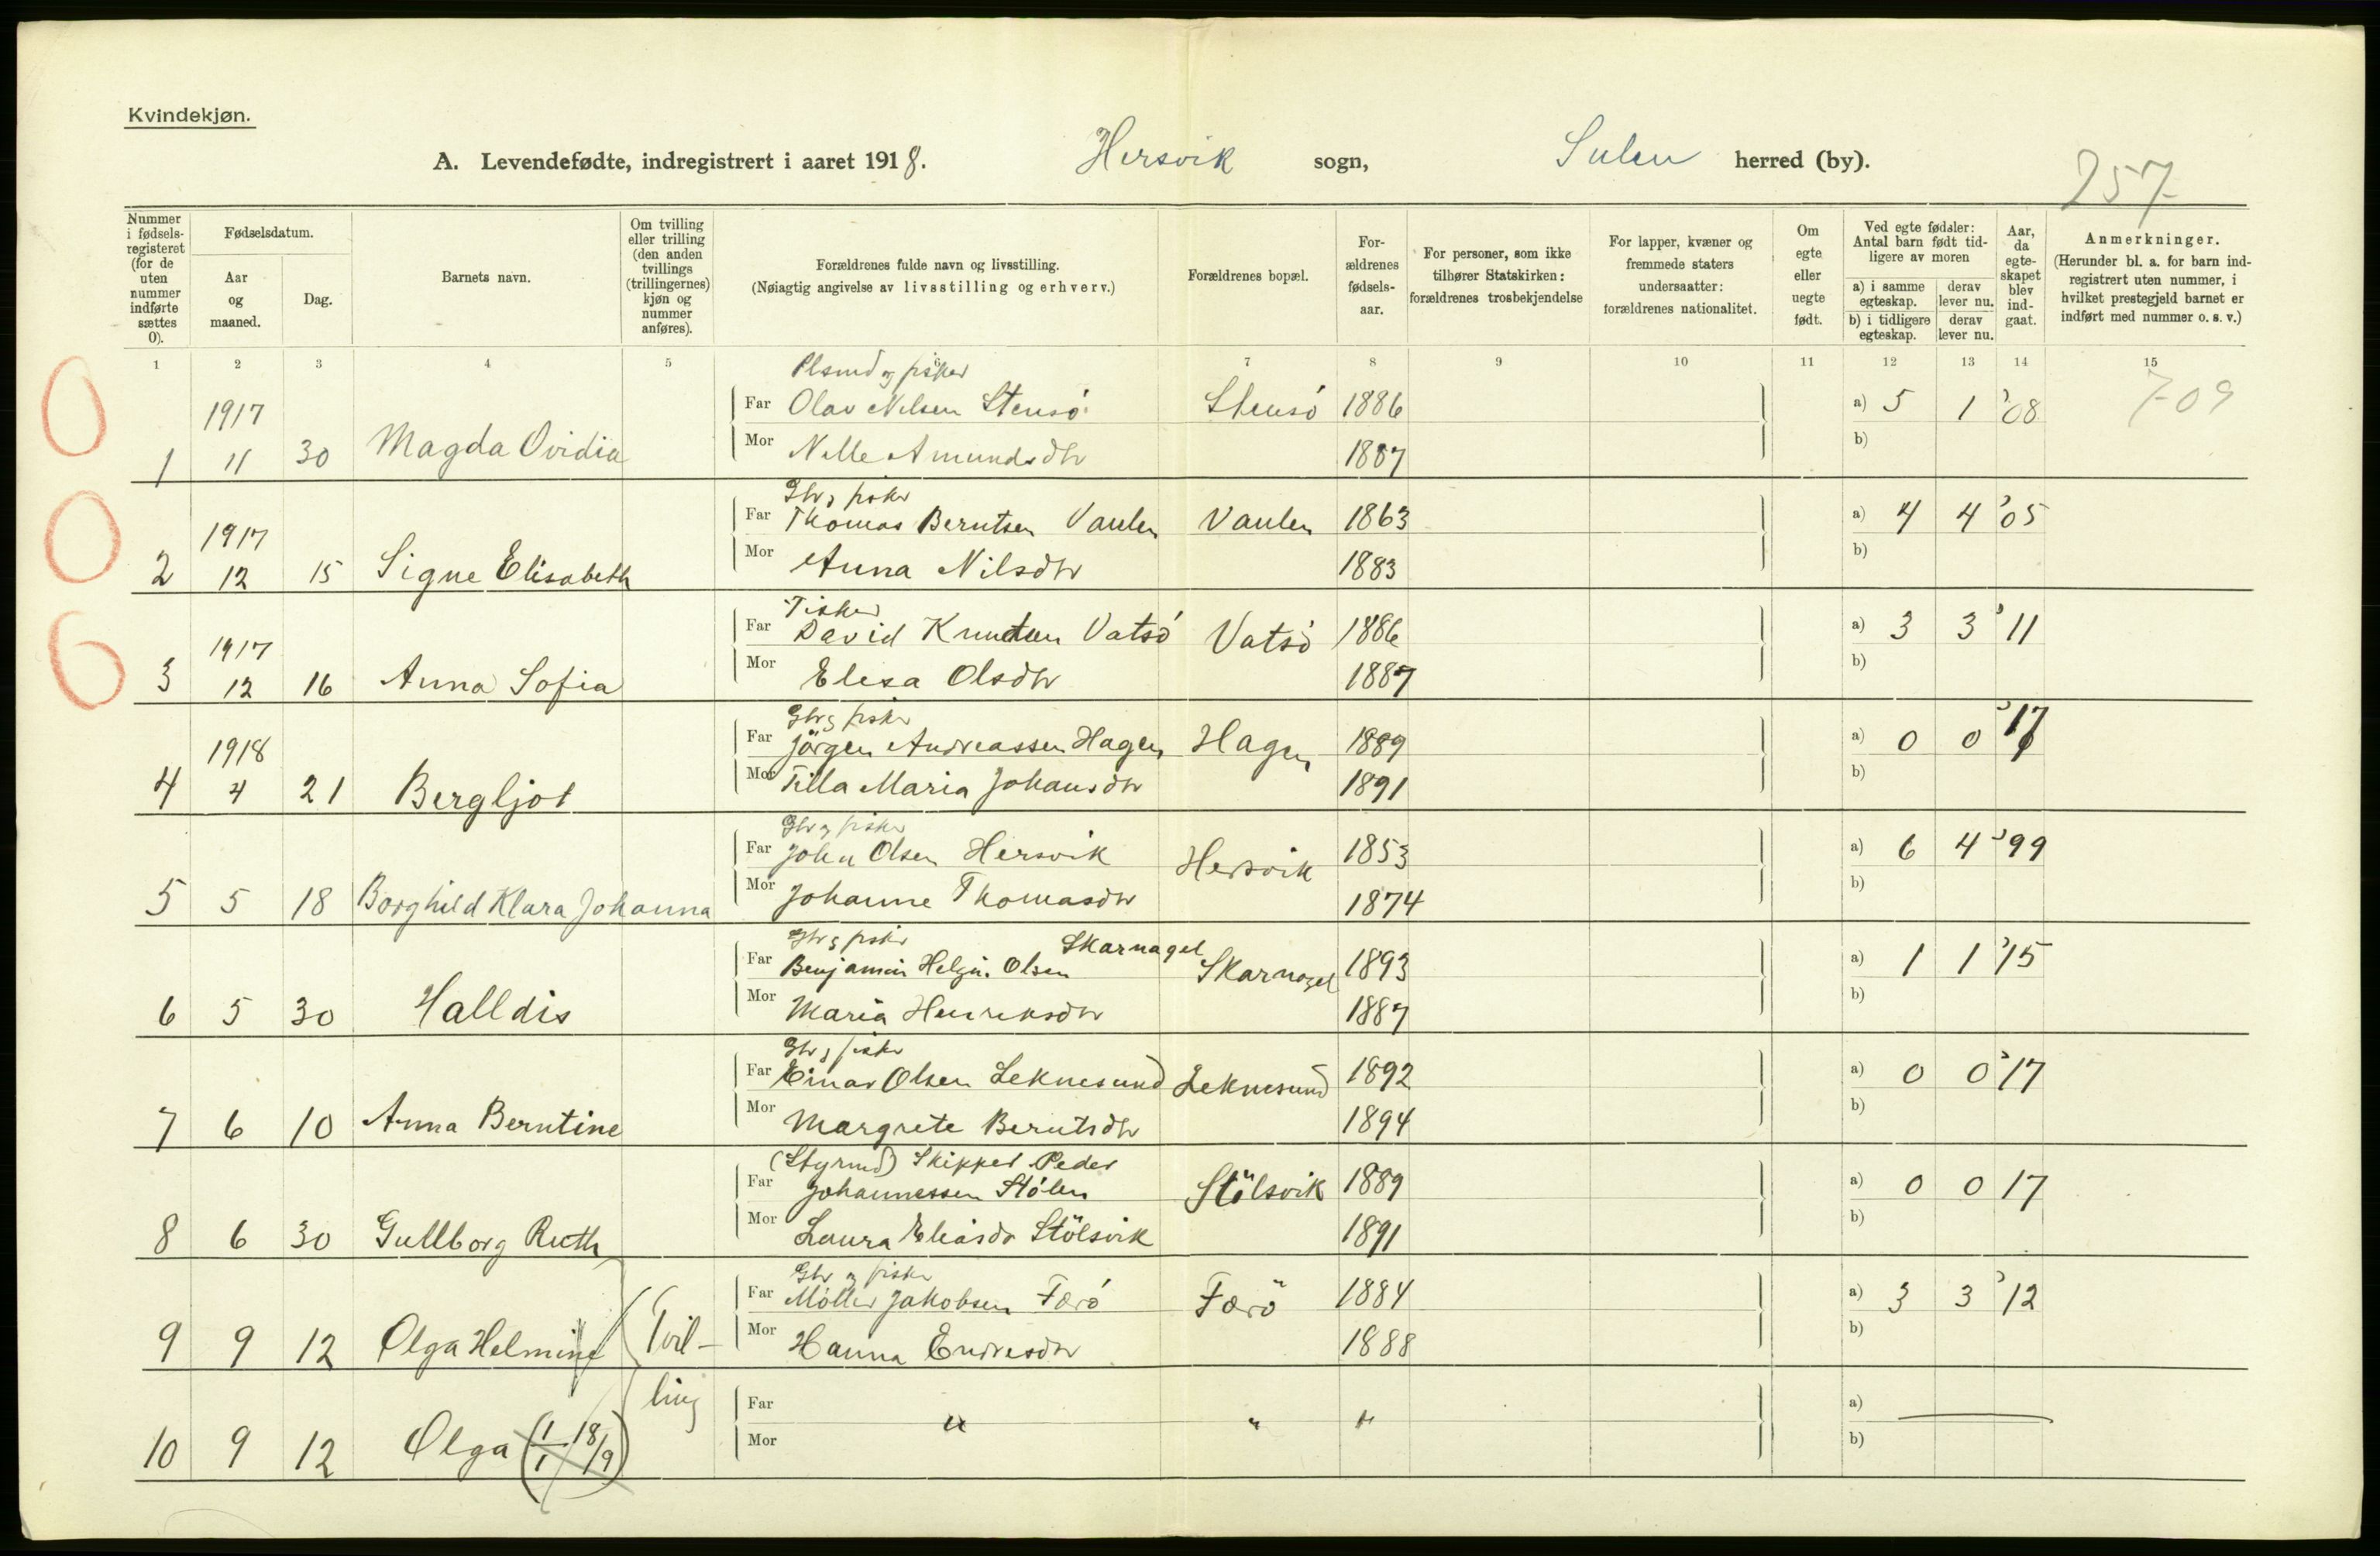 Kvindekjøn.
A. Levendefødte, indregistrert i aaret 1918. Hersvik sogn, Sulen herred (by).
257
Nummer i fødsels-registeret (for de uten nummer indførte sættes 0).
Fødselsdatum.
Aar og maaned.
Dag.
Barnets navn.
Om tvilling eller trilling (den anden tvillings (trillingernes) kjøn og nummer anføres).
Forældrenes fulde navn og livsstilling.
(Nøiagtig angivelse av livsstilling og erhverv.)
Forældrenes bopæl.
For-ældrenes fødsels-aar.
For personer, som ikke tilhører Statskirken: forældrenes trosbekjendelse
For lapper, kvæner og fremmede staters undersaatter: forældrenes nationalitet.
Om egte eller uegte født.
Ved egte fødsler: Antal barn født tid-ligere av moren
a) i samme egteskap.
derav lever nu.
b) i tidligere egteskap.
derav lever nu.
Aar, da egte-skapet blev ind-gaat.
Anmerkninger.
(Herunder bl. a. for barn ind-registrert uten nummer, i hvilket prestegjeld barnet er indført med nummer o. s. v.)
1 2 3 4 5 6 7 8 9 10 11 12 13 14 15
0
Plsmd og fisker
1917
Far Olav Nilsen Stensö Stensö 1886 a) 5 1 '08 709
1 11 30 Magda Ovidia
Mor Nille Amundsdtr 1887 b)
0
Gbr og fisker
1917
Far Thomas Berntsen Vaulen Vaulen 1863 a) 4 4 '05
2 12 15 Signe Elisabeth
Mor Anna Nilsdtr 1883 b)
6
Fisker
1917
Far David Knudsen Vatsö Vatsö 1886 a) 3 3 '11
3 12 16 Anna Sofia
Mor Elesa Olsdtr 1887 b)
Gbr og fisker
1918
Far Jörgen Andreassen Hagen Hagen 1889 a) 0 0 '17
4 4 21 Bergljot
Mor Tilla Maria Johansdtr 1891 b)
Gbr og fisker
Far John Olsen Hersvik Hersvik 1853 a) 6 4 '99
5 5 18 Borghild Klara Johanna
Mor Johanne Thomasdtr 1874 b)
Gbr og fisker Skarnagel
Far Benjamin Helgn. Olsen Skarnagel 1893 a) 1 1 '15
6 5 30 Halldis
Mor Maria Henriksdtr 1887 b)
Gbr og fisker
Far Einar Olsen Leknesund Leknesund 1892 a) 0 0 '17
7 6 10 Anna Berntine
Mor Margrete Berntsdtr 1894 b)
(Styrmd) Skipper Peder
Far Johannessen Stölen Stölsvik 1889 a) 0 0 17
8 6 30 Gullborg Ruth
Mor Laura Eliasdr Stölsvik 1891 b)
Gbr og fisker
Far Möller Jakobsen Færö Færö 1884 a) 3 3 '12
9 9 12 Olga Helmine Tvil-
Mor Hanna Endresdtr 1888 b)
ling
Far " " " a)
10 9 12 Olga (1/1 18/9)
Mor b)